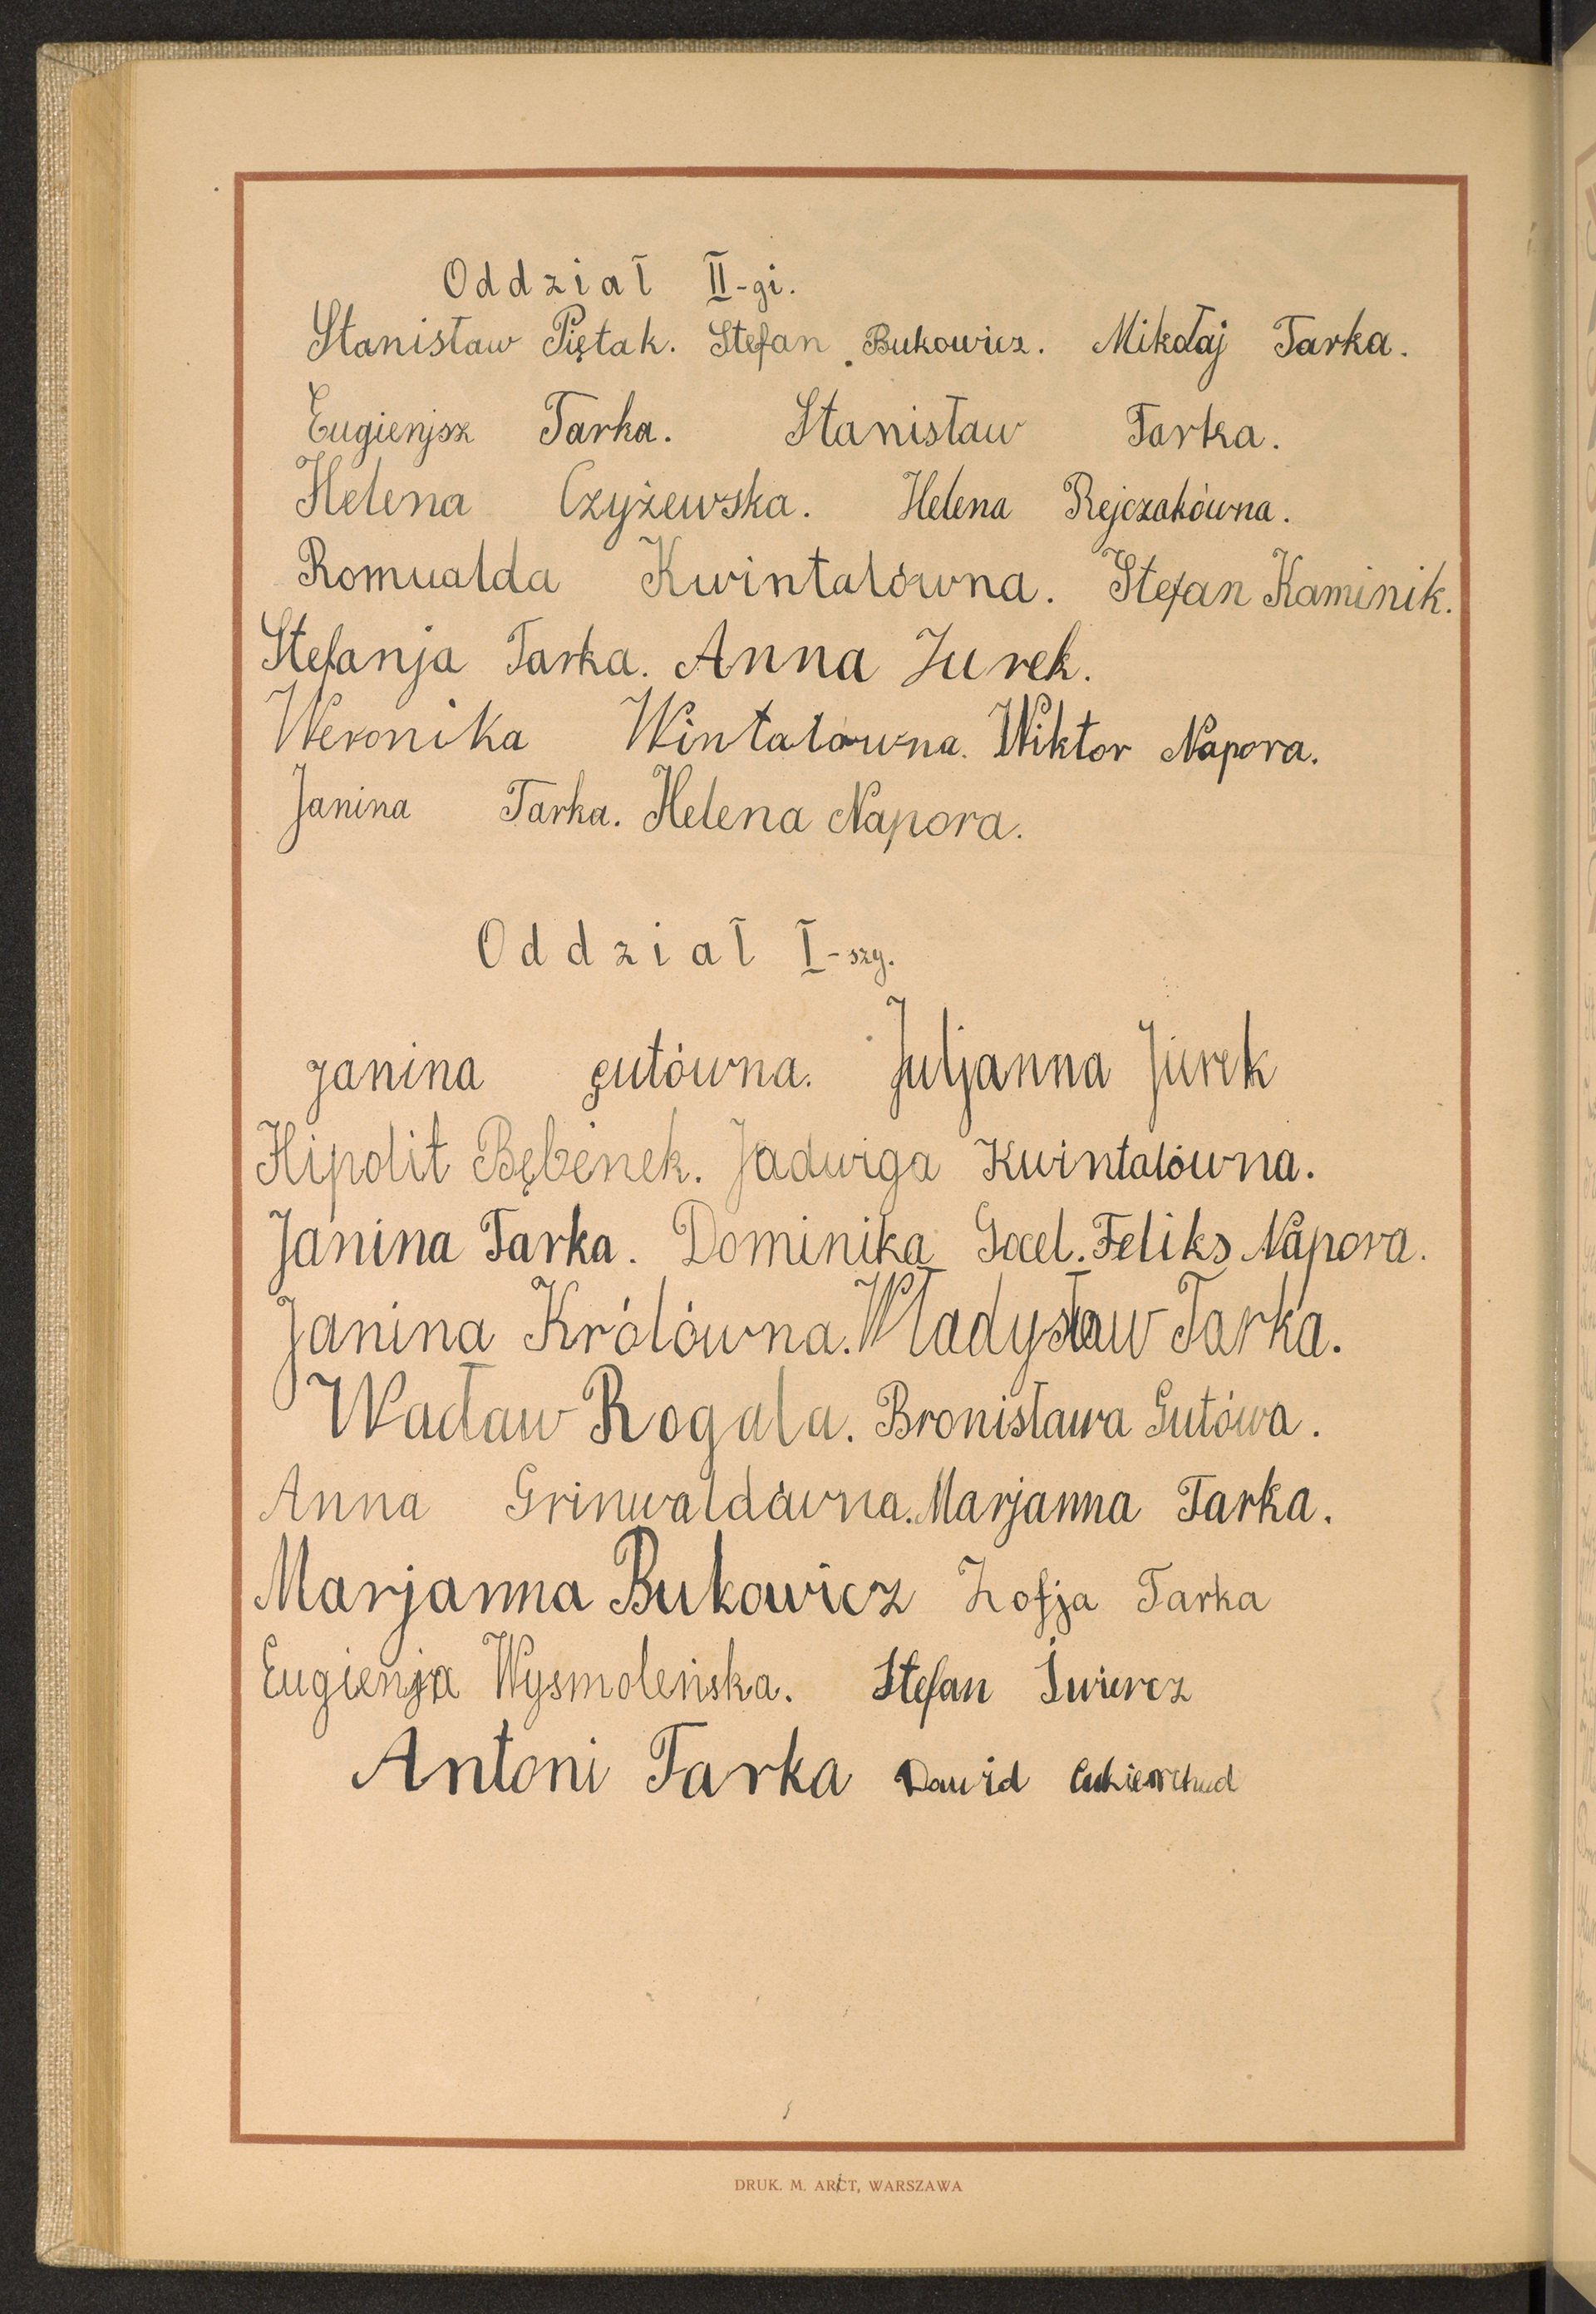 Oddział II-gi.
Stanisław Piętak. Stefan Bukowicz. Mikołaj Tarka.
Eugienjsz Tarka. Stanisław Tarka.
Helena Czyżewska. Helena Rejczakówna.
Romualda Kwintalówna. Stefan Kaminik.
Stefanja Tarka. Anna Jurek.
Weronika Wintalówna. Wiktor Napora.
Janina Tarka. Helena Napora.
Oddział I-szy.
Janina gutówna. Juljanna Jurek
Hipolit Bębenek. Jadwiga Kwintalówna.
Janina Tarka. Dominika Gael. Feliks Napora.
Janina Królówna. Władysław Tarka.
Wacław Rogala. Bronisława Gutówa.
Anna Grinwaldówna. Marjanna Tarka.
Marjanna Bukowicz Zofja Tarka
Eugienja Wysmoleńska. Stefan Świercz
Antoni Tarka Dawid
DRUK. M. ARCT, WARSZAWA